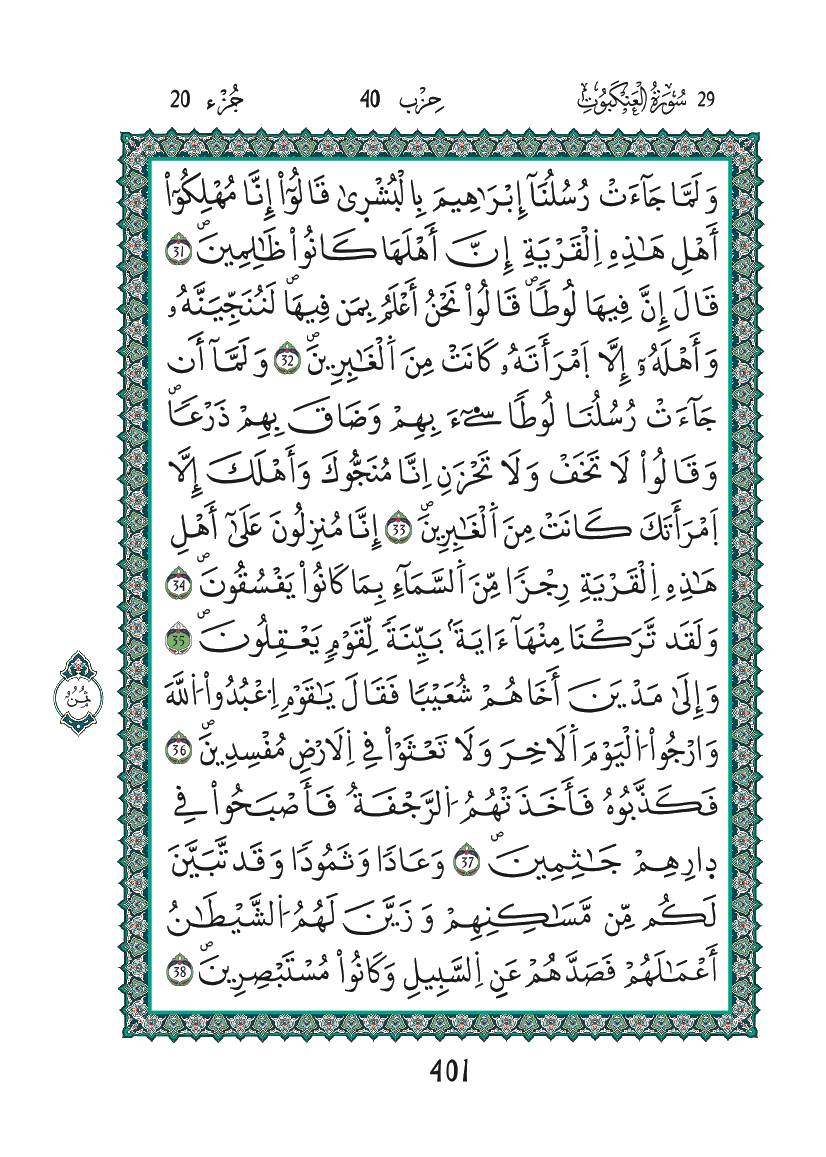 29 سُورَةُ الْعَنكَبُوتِ حِزْب 40 جُزْء 20
وَلَمَّا جَآءَتْ رُسُلُنَآ إِبْرَٰهِيمَ بِالْبُشْر۪ىٰ قَالُوٓاْ إِنَّا مُهْلِكُوٓاْ
أَهْلِ هَٰذِهِ اِ۬لْقَرْيَةِ إِنَّ أَهْلَهَا كَانُواْ ظَٰلِمِينَۖ 31
قَالَ إِنَّ فِيهَا لُوطاٗۖ قَالُواْ نَحْنُ أَعْلَمُ بِمَن فِيهَاۖ لَنُنَجِّيَنَّهُۥ
وَأَهْلَهُۥٓ إِلَّا اَ۪مْرَأَتَهُۥ كَانَتْ مِنَ اَ۬لْغَٰبِرِينَۖ 32 وَلَمَّآ أَن
جَآءَتْ رُسُلُنَا لُوطاٗ سِےٓءَ بِهِمْ وَضَاقَ بِهِمْ ذَرْعاٗۖ
وَقَالُواْ لَا تَخَفْ وَلَا تَحْزَنِ اِنَّا مُنَجُّوكَ وَأَهْلَكَ إِلَّا
اَ۪مْرَأَتَكَ كَانَتْ مِنَ اَ۬لْغَٰبِرِينَۖ 33 إِنَّا مُنزِلُونَ عَلَىٰٓ أَهْلِ
هَٰذِهِ اِ۬لْقَرْيَةِ رِجْزاٗ مِّنَ اَ۬لسَّمَآءِ بِمَا كَانُواْ يَفْسُقُونَۖ 34
وَلَقَد تَّرَكْنَا مِنْهَآ ءَايَةَۢ بَيِّنَةٗ لِّقَوْمٖ يَعْقِلُونَۖ 35
وَإِلَىٰ مَدْيَنَ أَخَاهُمْ شُعَيْباٗ فَقَالَ يَٰقَوْمِ اِ۟عْبُدُواْ اُ۬للَّهَ
ثُمُن
وَارْجُواْ اُ۬لْيَوْمَ اَ۬لَاخِرَ وَلَا تَعْثَوْاْ فِي اِ۬لَارْضِ مُفْسِدِينَۖ 36
فَكَذَّبُوهُ فَأَخَذَتْهُمُ اُ۬لرَّجْفَةُ فَأَصْبَحُواْ فِي
د۪ارِهِمْ جَٰثِمِينَۖ 37 وَعَاداٗ وَثَمُوداٗ وَقَد تَّبَيَّنَ
لَكُم مِّن مَّسَٰكِنِهِمْ وَزَيَّنَ لَهُمُ اُ۬لشَّيْطَٰنُ
أَعْمَٰلَهُمْ فَصَدَّهُمْ عَنِ اِ۬لسَّبِيلِ وَكَانُواْ مُسْتَبْصِرِينَۖ 38
401